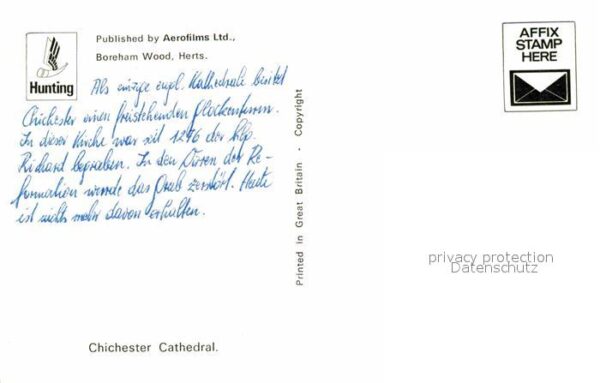 Published by Aerofilms Ltd.,
Boreham Wood, Herts.
Hunting
Als einzige engl. Kathedrale besitzt
Chichester einen freistehenden Glockenturm.
In dieser Kirche war seit 1276 der hlg.
Richard begraben. In den Wirren der Re-
formation wurde das Grab zerstört. Heute
ist nichts mehr davon erhalten.
Printed in Great Britain · Copyright
AFFIX
STAMP
HERE
privacy protection
Datenschutz
Chichester Cathedral.